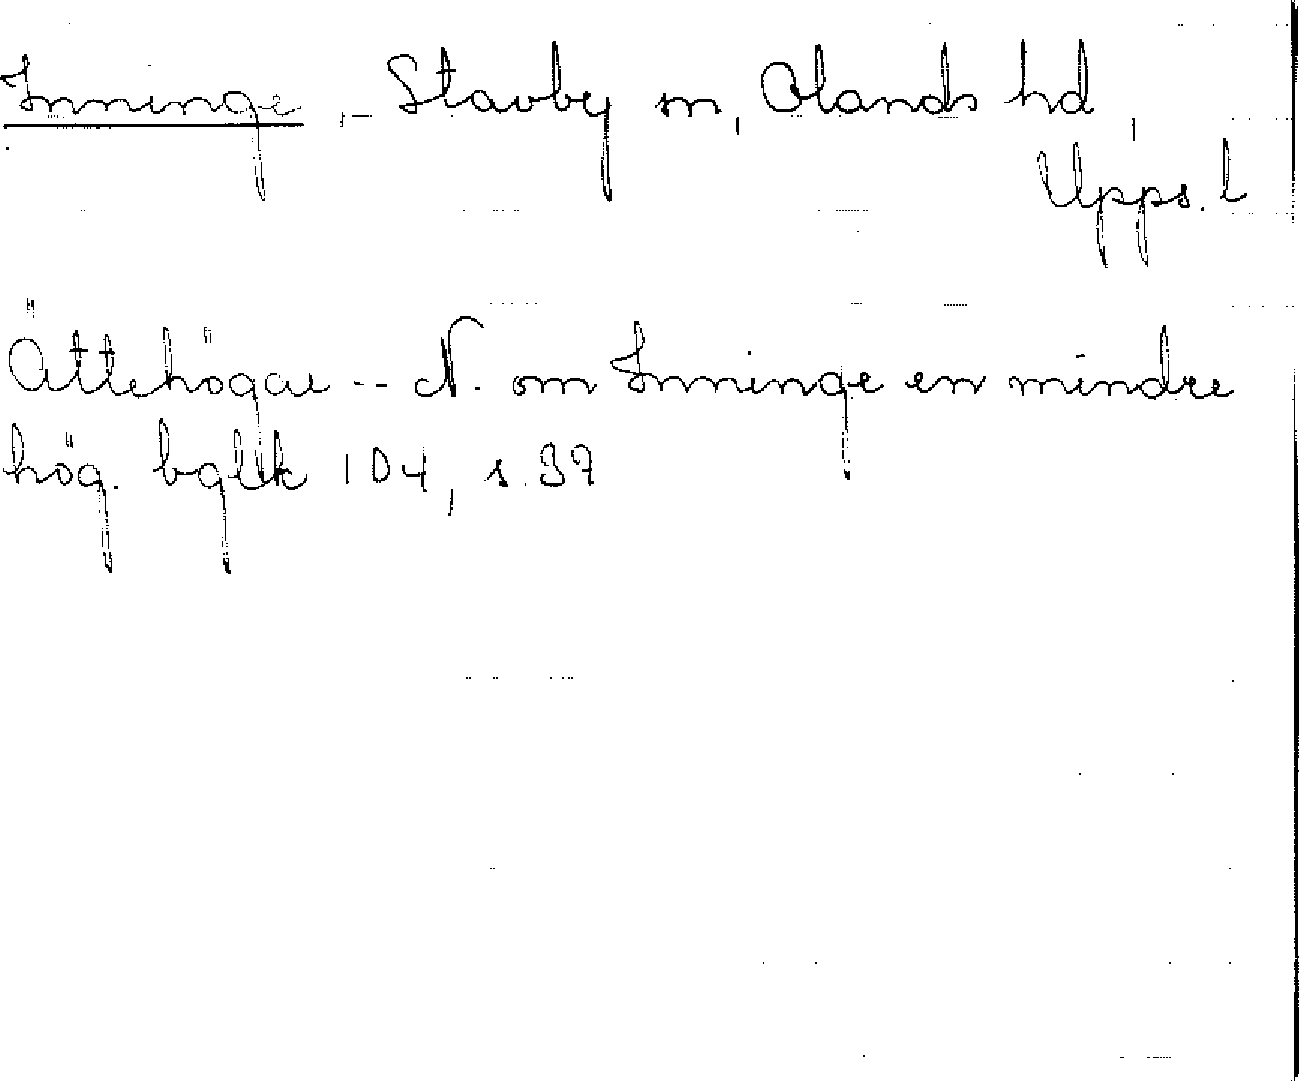 Inninge, Stavby sn, Olands hd,
Upps. l
Ättehögar -- N. om Inninge en mindre
hög. bglk 104, s. 37